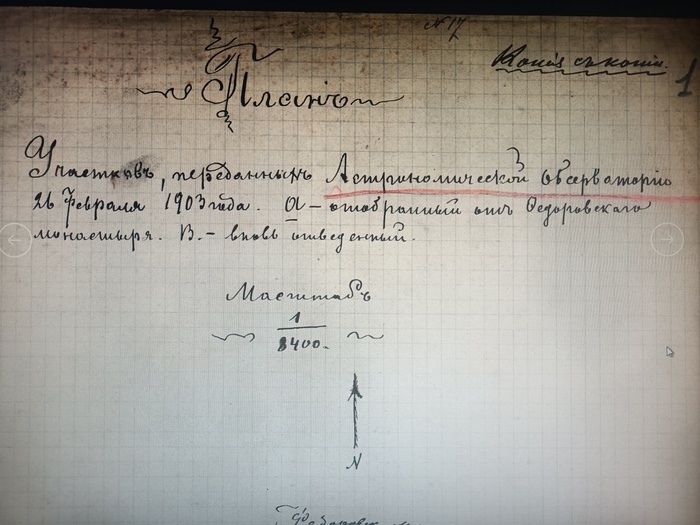 № 17
Копія съ копіи.
1
Планъ
Участковъ, переданныхъ Астрономической Обсерваторіи
26 Февраля 1903 года. а – отобранный отъ Ѳедоровскаго
монастыря. В. – вновь отведенный.
Масштабъ
1
8400.
N